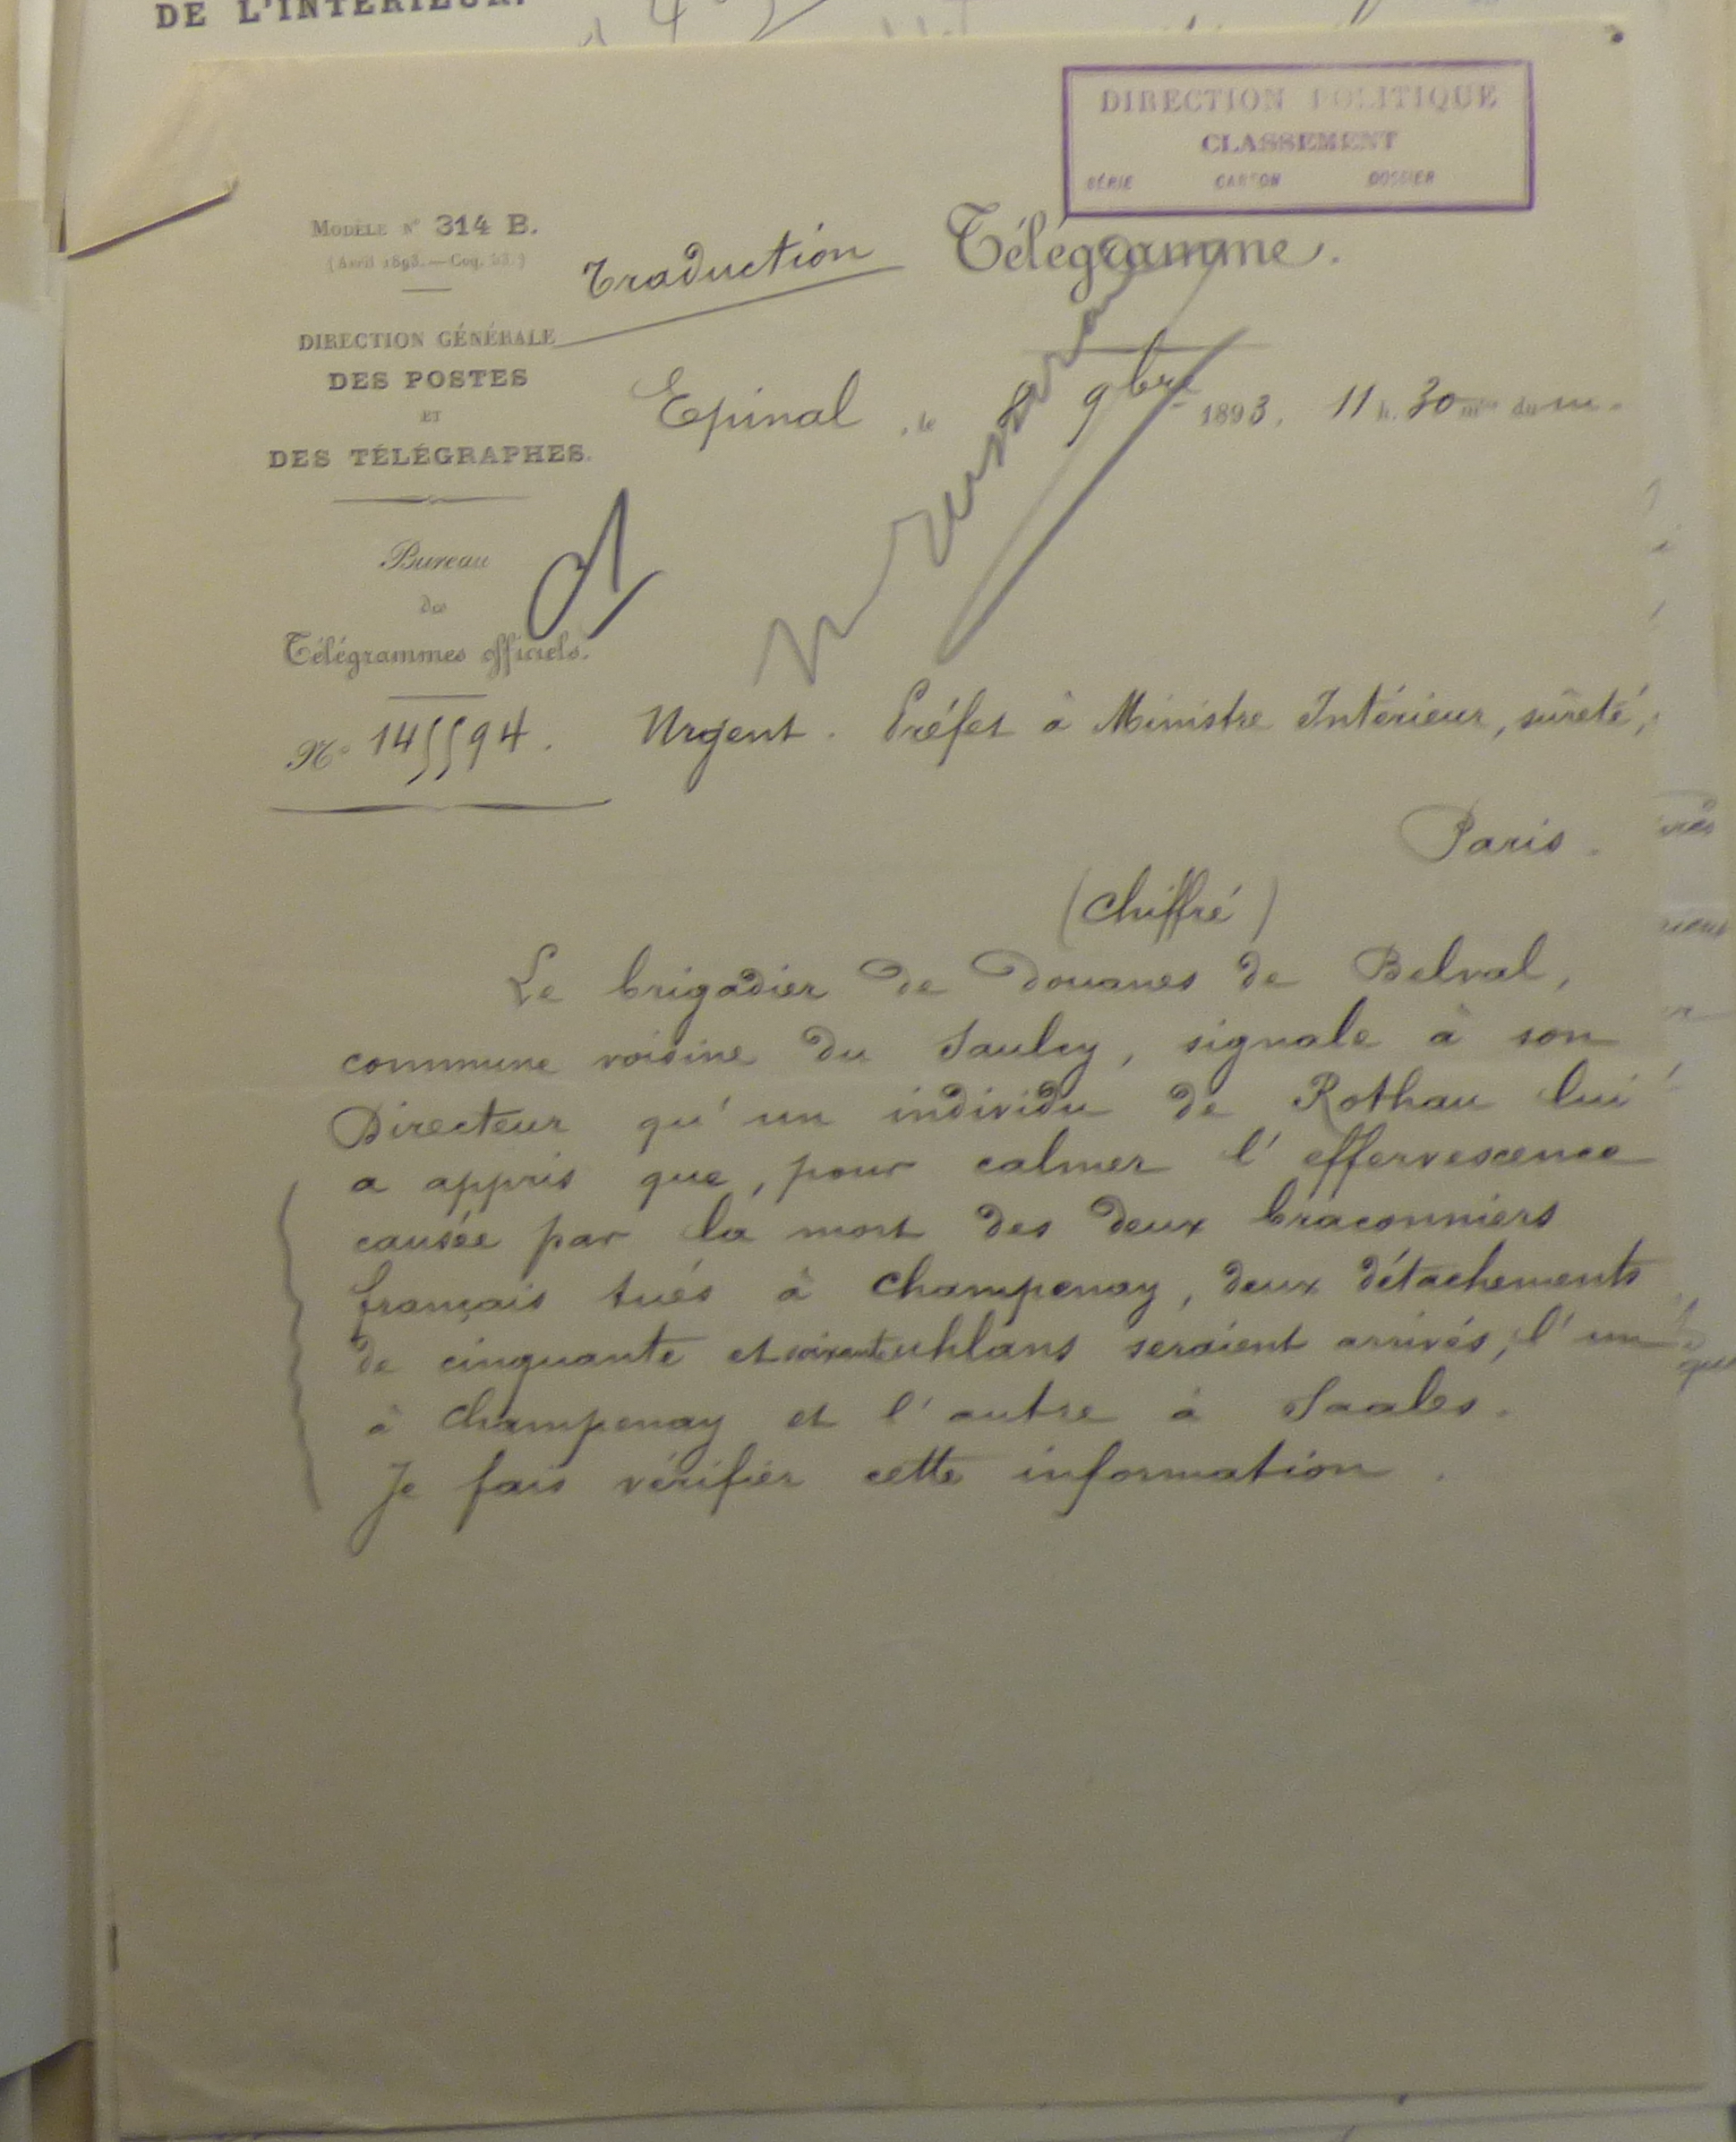 DE L'INTÉRIEUR.
DIRECTION POLITIQUE
CLASSEMENT
SÉRIE CARTON DOSSIER
MODÈLE N° 314 B.
(Avril 1893.
Traduction
Télégramme.
DIRECTION GÉNÉRALE
DES POSTES
ET
DES TÉLÉGRAPHES.
Epinal, le 9bre 1893, 11 h. 30 mtes du m.
Bureau
des
Télégrammes officiels.
N° 145594.
Urgent. Préfet à Ministre Intérieur, sûreté,
Paris.
(Chiffré)
Le brigadier de Douanes de Belval,
commune voisine du Saulcy, signale à son
Directeur qu'un individu de Rothau lui
a appris que, pour calmer l'effervescence
causée par la mort des deux braconniers
français tués à Champenay, deux détachements
de cinquante et soixante uhlans seraient arrivés, l'un
à Champenay et l'autre à Saales.
Je fais vérifier cette information.